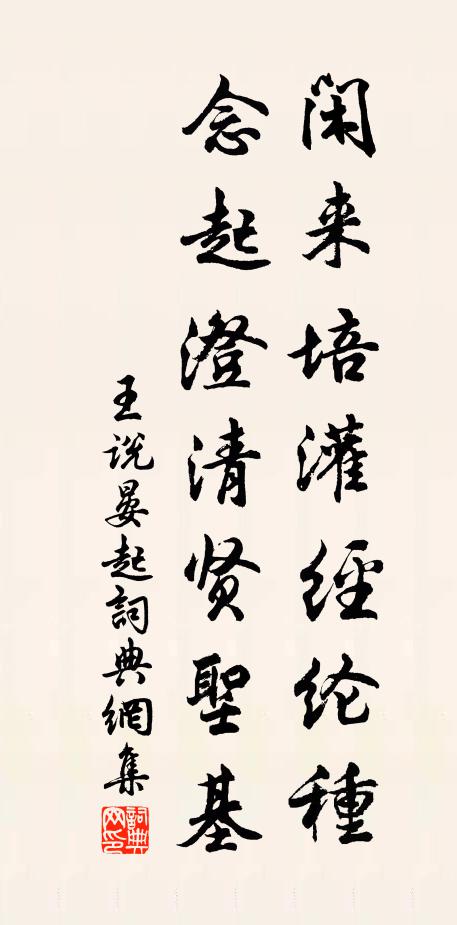 闲来培灌经纶種
念起澄清贤聖基
王说晏起詞典網集
詞典網印